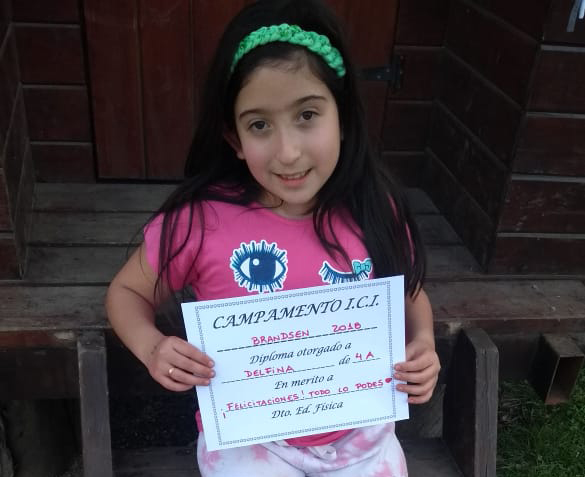 CAMPAMENTO I.C.I.
BRANDSEN 2018
Diploma otorgado a
DELFINA de 4A
En merito a
¡FELICITACIONES! TODO LO PODES
Dto. Ed. Física